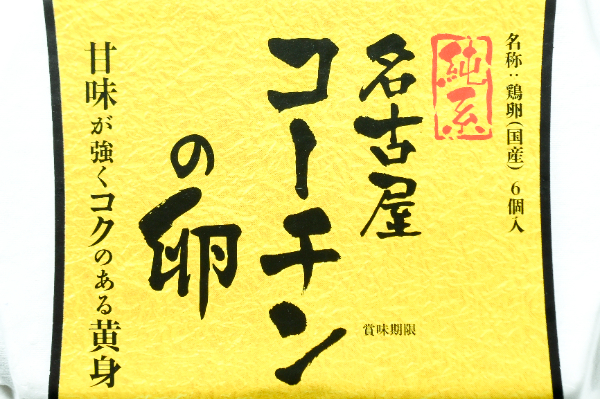 名称：鶏卵(国産) 6個入
純系
名古屋
コーチン
の卵
甘味が強くコクのある黄身
賞味期限